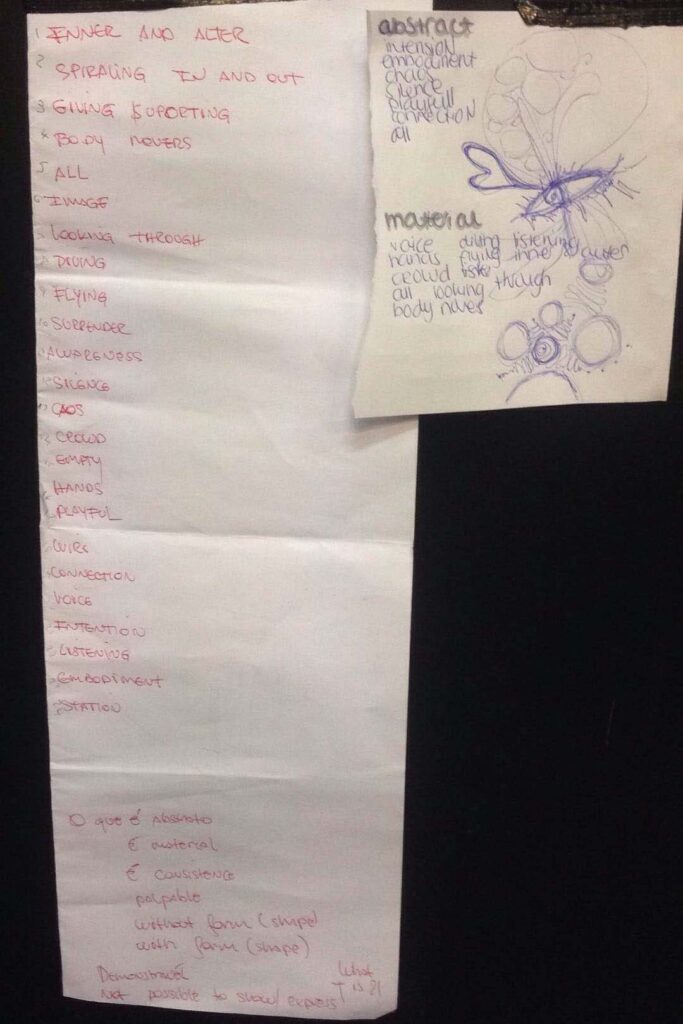 1 INNER AND ALTER
2 SPIRALING IN AND OUT
3 GIVING SUPORTING
4 BODY MOVERS
5 ALL
6 IMAGE
LOOKING THROUGH
8 DIVING
9 FLYING
10 SURRENDER
AWARENESS
SILENCE
CAOS
CROWD
EMPTY
HANDS
PLAYFUL
CONNECTION
VOICE
INTENTION
LISTENING
EMBODIMENT
STATION
O que é Abstrato
É material
É consistence
palpable
without form (shape)
with form (shape)
Not possible to show/express
What
is
abstract
intension
embodiment
chaos
silence
playfull
connection
all
material
voice diving listening
hands flying inner &
crowd
all looking through
body